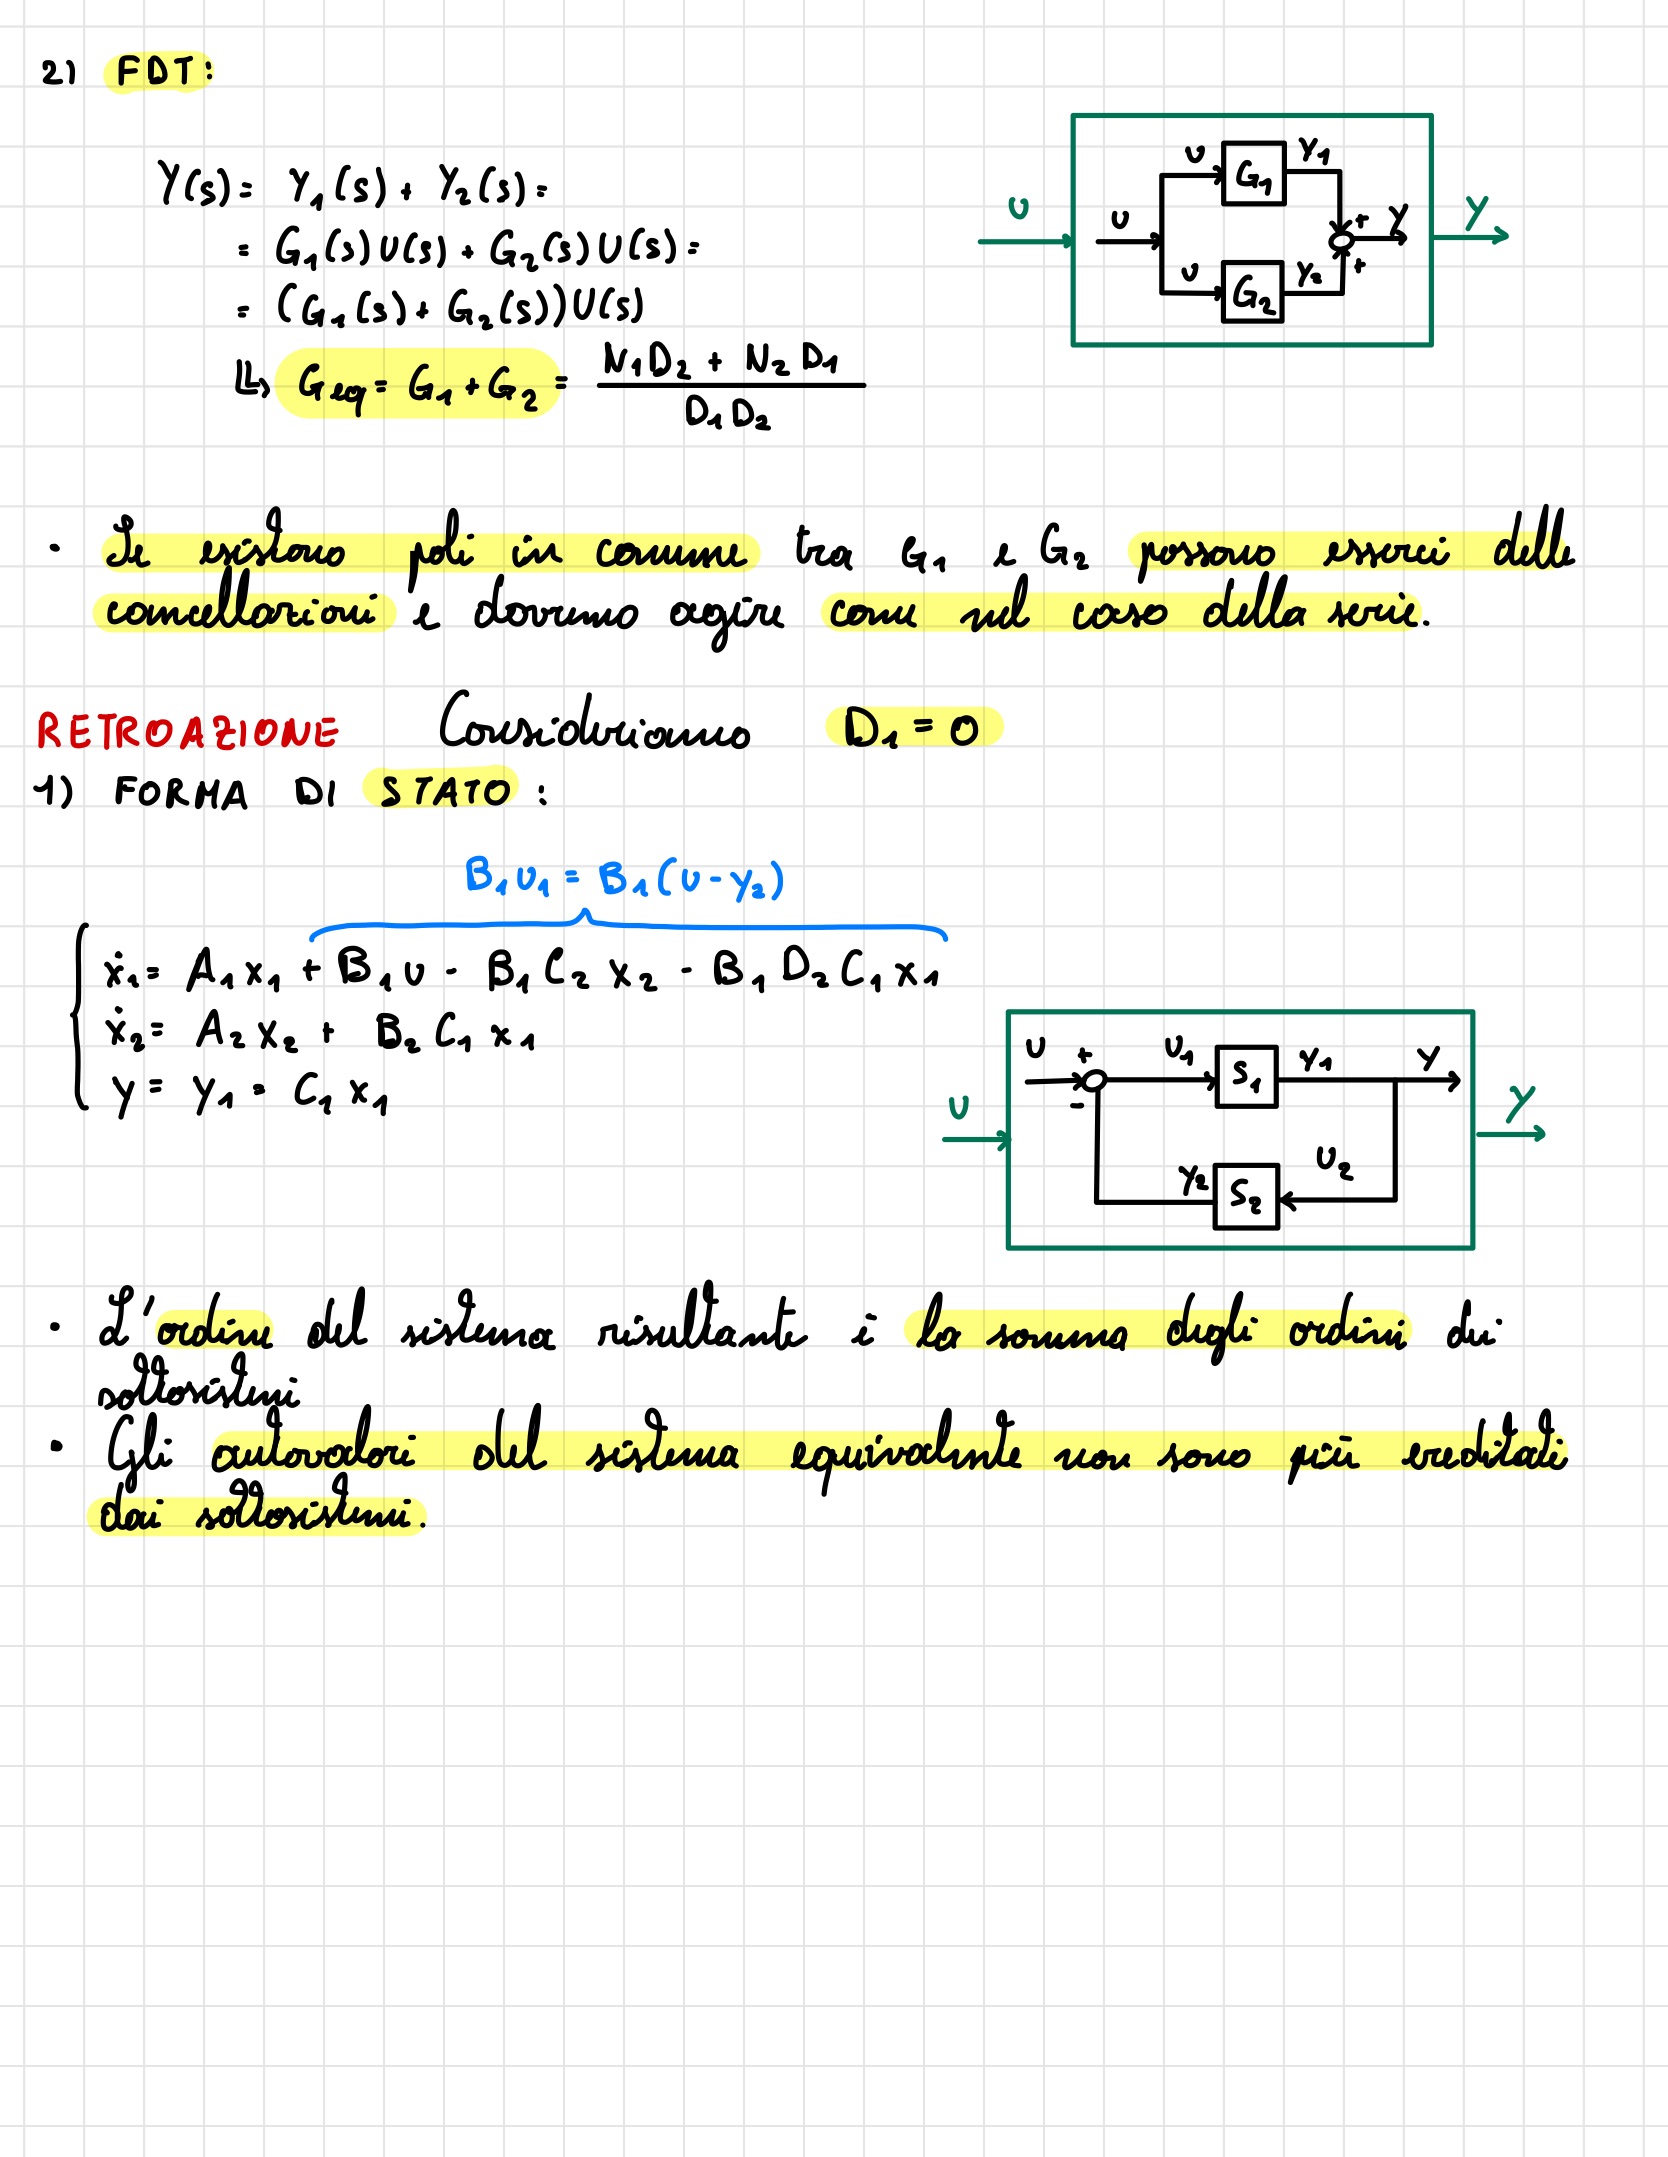 2) FDT:
Y(s) = Y₁(s) + Y₂(s) =
= G₁(s)U(s) + G₂(s)U(s) =
= (G₁(s) + G₂(s))U(s)
G_eq = G₁ + G₂ = (N₁D₂ + N₂D₁) / (D₁D₂)
U U U G₁ Y₁ + Y Y
U G₂ Y₂ +
• Se esistono poli in comune tra G₁ e G₂ possono esserci delle
cancellazioni e dovremo agire come nel caso della serie.
RETROAZIONE Consideriamo D₁ = 0
1) FORMA DI STATO :
B₁u₁ = B₁(u - y₂)
ẋ₁ = A₁x₁ + B₁u - B₁C₂x₂ - B₁D₂C₁x₁
ẋ₂ = A₂x₂ + B₂C₁x₁
y = y₁ = C₁x₁
U U + - U₁ S₁ Y₁ Y Y
Y₂ S₂ U₂
• L'ordine del sistema risultante è la somma degli ordini dei
sottosistemi
• Gli autovalori del sistema equivalente non sono più ereditati
dai sottosistemi.